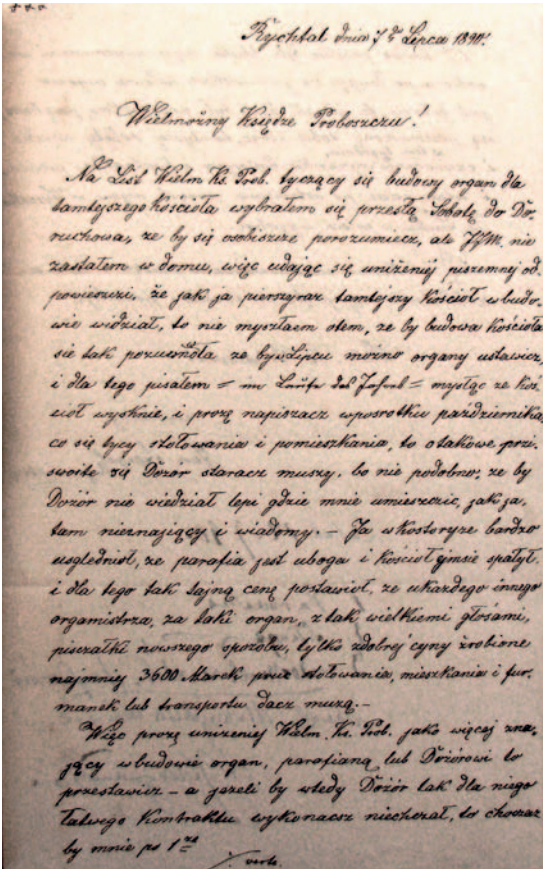 Rychtal dnia 7go Lipca 1890.
Wielmożny Księdze Proboszczu!
Na List Wielm Ks. Prob. tyczący się budowy organ dla
tamtejszego kościoła wybrałem się przesłą Sobotę do Do-
ruchowa, ze by się osobiszcze porozumiecz, ale JgM. nie
zastałem w domu, więc udając się uniżeniej piszemnej od
powieszczi, że jak ja pierszyraz tamtejszy kościół w budo-
wie widział, to nie myszłałem otem, ze by budowa kościoła
sie tak pozuwnoła ze by w Lipcu możno organy ustawicz,
i dla tego pisałem = im Laufe des Jahres = mysląc ze koś-
ciół wyschnie, i prozę napiszacz wposrotku października,
co się tyczy stołowania i pomieszkania, to otakowe przi-
swoite się Dozór staracz muszy, bo nie podobno, ze by
Dozór nie wiedział lepi gdzie mnie umieszczic, jak ja,
tam nieznający i wiadomy. – Ja wkostoryze bardzo
usgledniół, ze parafia jest uboga i kościół jimsie spalył.
i dla tego tak tajną cenę postawiół, ze ukazdego innego
orgamistrza, za taki organ, z tak wielkiemi głosami,
piszczałki nowszego sposobu, tylko zdobrej cyny zrobione
najmniej 3600 Marek prucz stołowania, mieszkania i fur-
manek lub transportu dacz muzą. –
Więc prozę uniżeniej Wielm. Ks. Prob. jako więcej zna-
jący wbudowie organ, parafianą lub Dozórowi to
przestawicz – a jezeli by wtedy Dozór tak dla niego
łatwego Kontraktu wykonacz niechczał, to choczaz
by mnie po 1szе
verte.